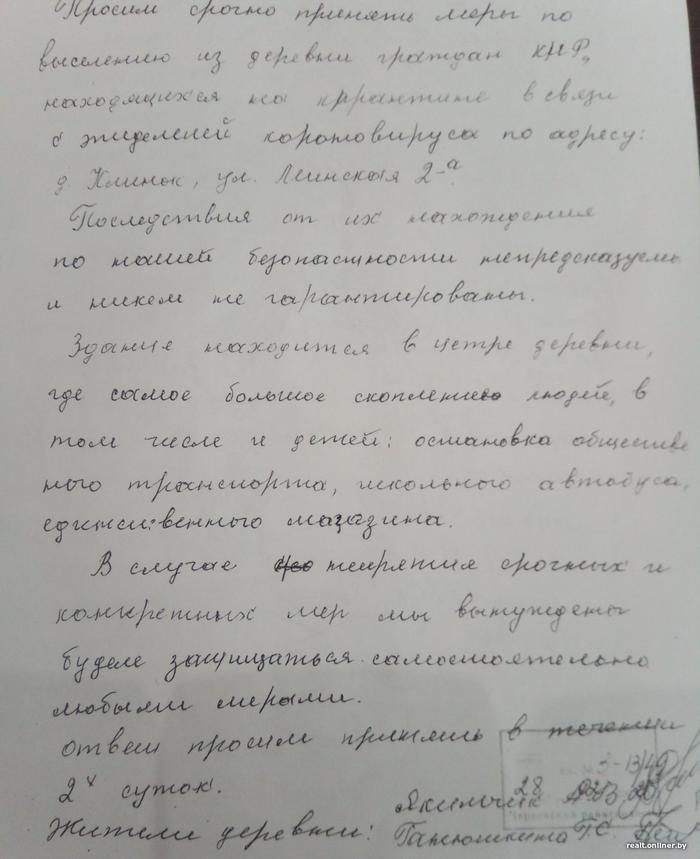 Просим срочно принять меры по
выселению из деревни граждан КНР,
находящихся на карантине в связи
с эпидемией коронавируса по адресу:
д. Клинок, ул. Минская 2-а.
Последствия от их нахождения
по нашей безопасности непредсказуемы
и никем не гарантированы.
Здание находится в цетре деревни,
где самое большое скопление людей, в
том числе и детей: остановка обществе
ного транспорта, школьного автобуса,
единственного магазина.
В случае непрятия срочных и
конкретных мер мы вынуждены
будем защищаться самостоятельно
любыми мерами.
ответ просим принять в течении
2х суток.
3-13/49
28
Жители деревни: Якимчик
Ганюшкина Т.С.
realt.onliner.by